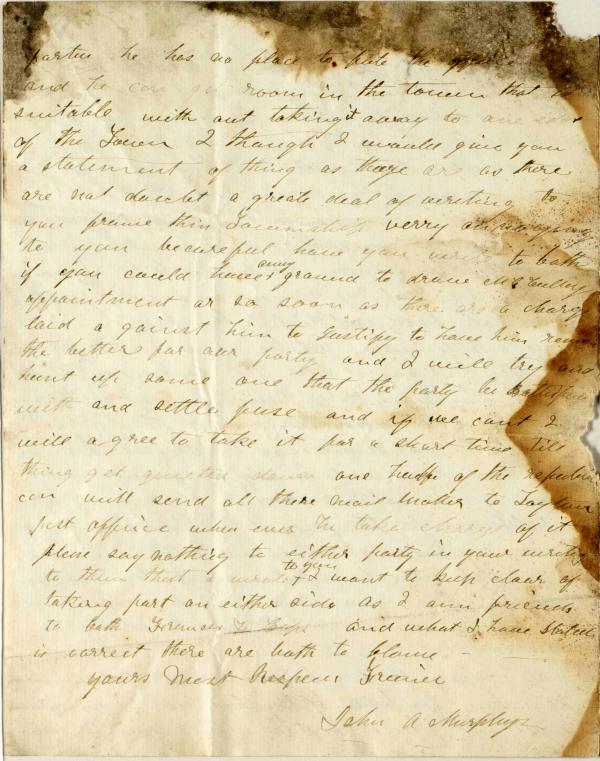 he has no place to the
and he room in the touen that is
suitable with out taking it away to one side
of the Touen I though I would give you
a statement of thing as they are as there
are not doubt a greate deal of writing to
you frame this verry
to you be careful how you write to both
if you could have eny ground to
appointment or so soon as there are a charge
laid a gainst him to Justify to have him
the better for our party and I will try and
hunt up some one that the party be
with and settle fuse and if we cant I
will a gree to take it for a short time till
thing get quieted down one half of the republi
can will send all there mail matter to Layton
post office when ever he take charge of it
please say nothing to either party in your
to them that I to you I want to keep clear of
taking part on either side as I am friends
to both and what I have stated
is correct there are both to blame -
yours Most
John A Murphy